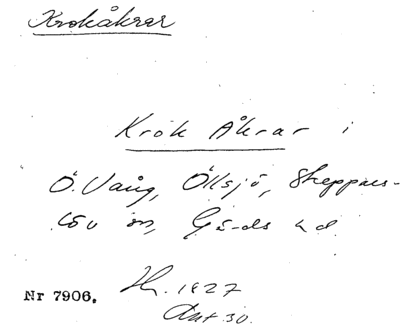 Krokåkrar
Krok Åkrar i
Ö. Vång, Öllsjö, Skeppars-
löv sn, Gärds hd
Nr 7906. 1827
Akt 30.